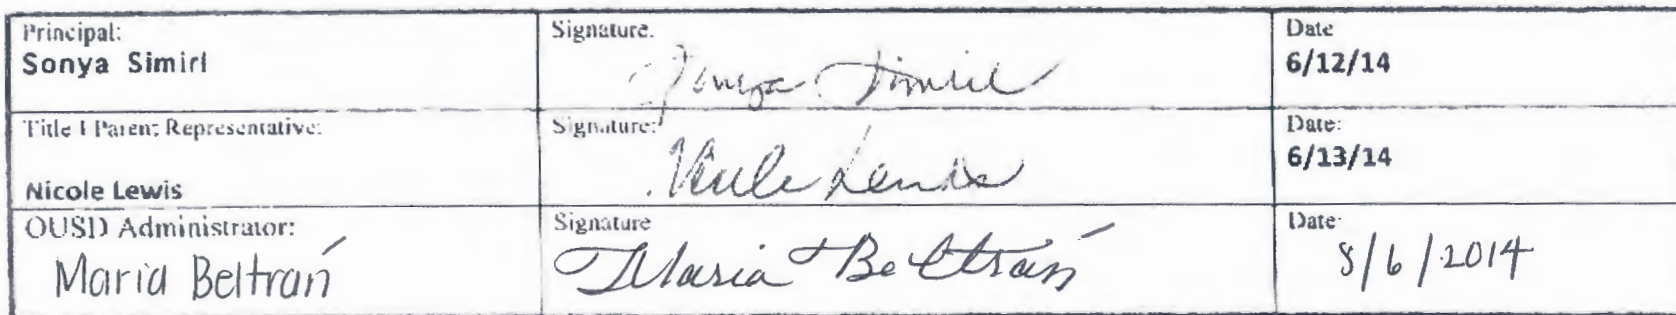 Principal:
Sonya Simirl
Signature.
Sonya Simril
Date
6/12/14
Title I Parent Representative:
Nicole Lewis
Signature:
Nicole Lewis
Date:
6/13/14
OUSD Administrator:
Maria Beltrán
Signature
Maria Beltrán
Date:
8/6/2014